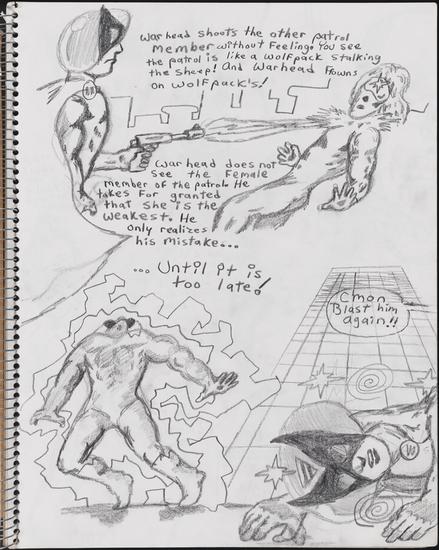 Warhead shoots the other patrol
Member without Feeling. You see
the patrol is like a wolfpack stalking
the sheep! And Warhead Frowns
on wolfpack's!
Warhead does not
see the Female
member of the patrol. He
takes For granted
that she is the
weakest. He
only realizes
his mistake...
... Until it is
too late!
C'mon
Blast him
again!!